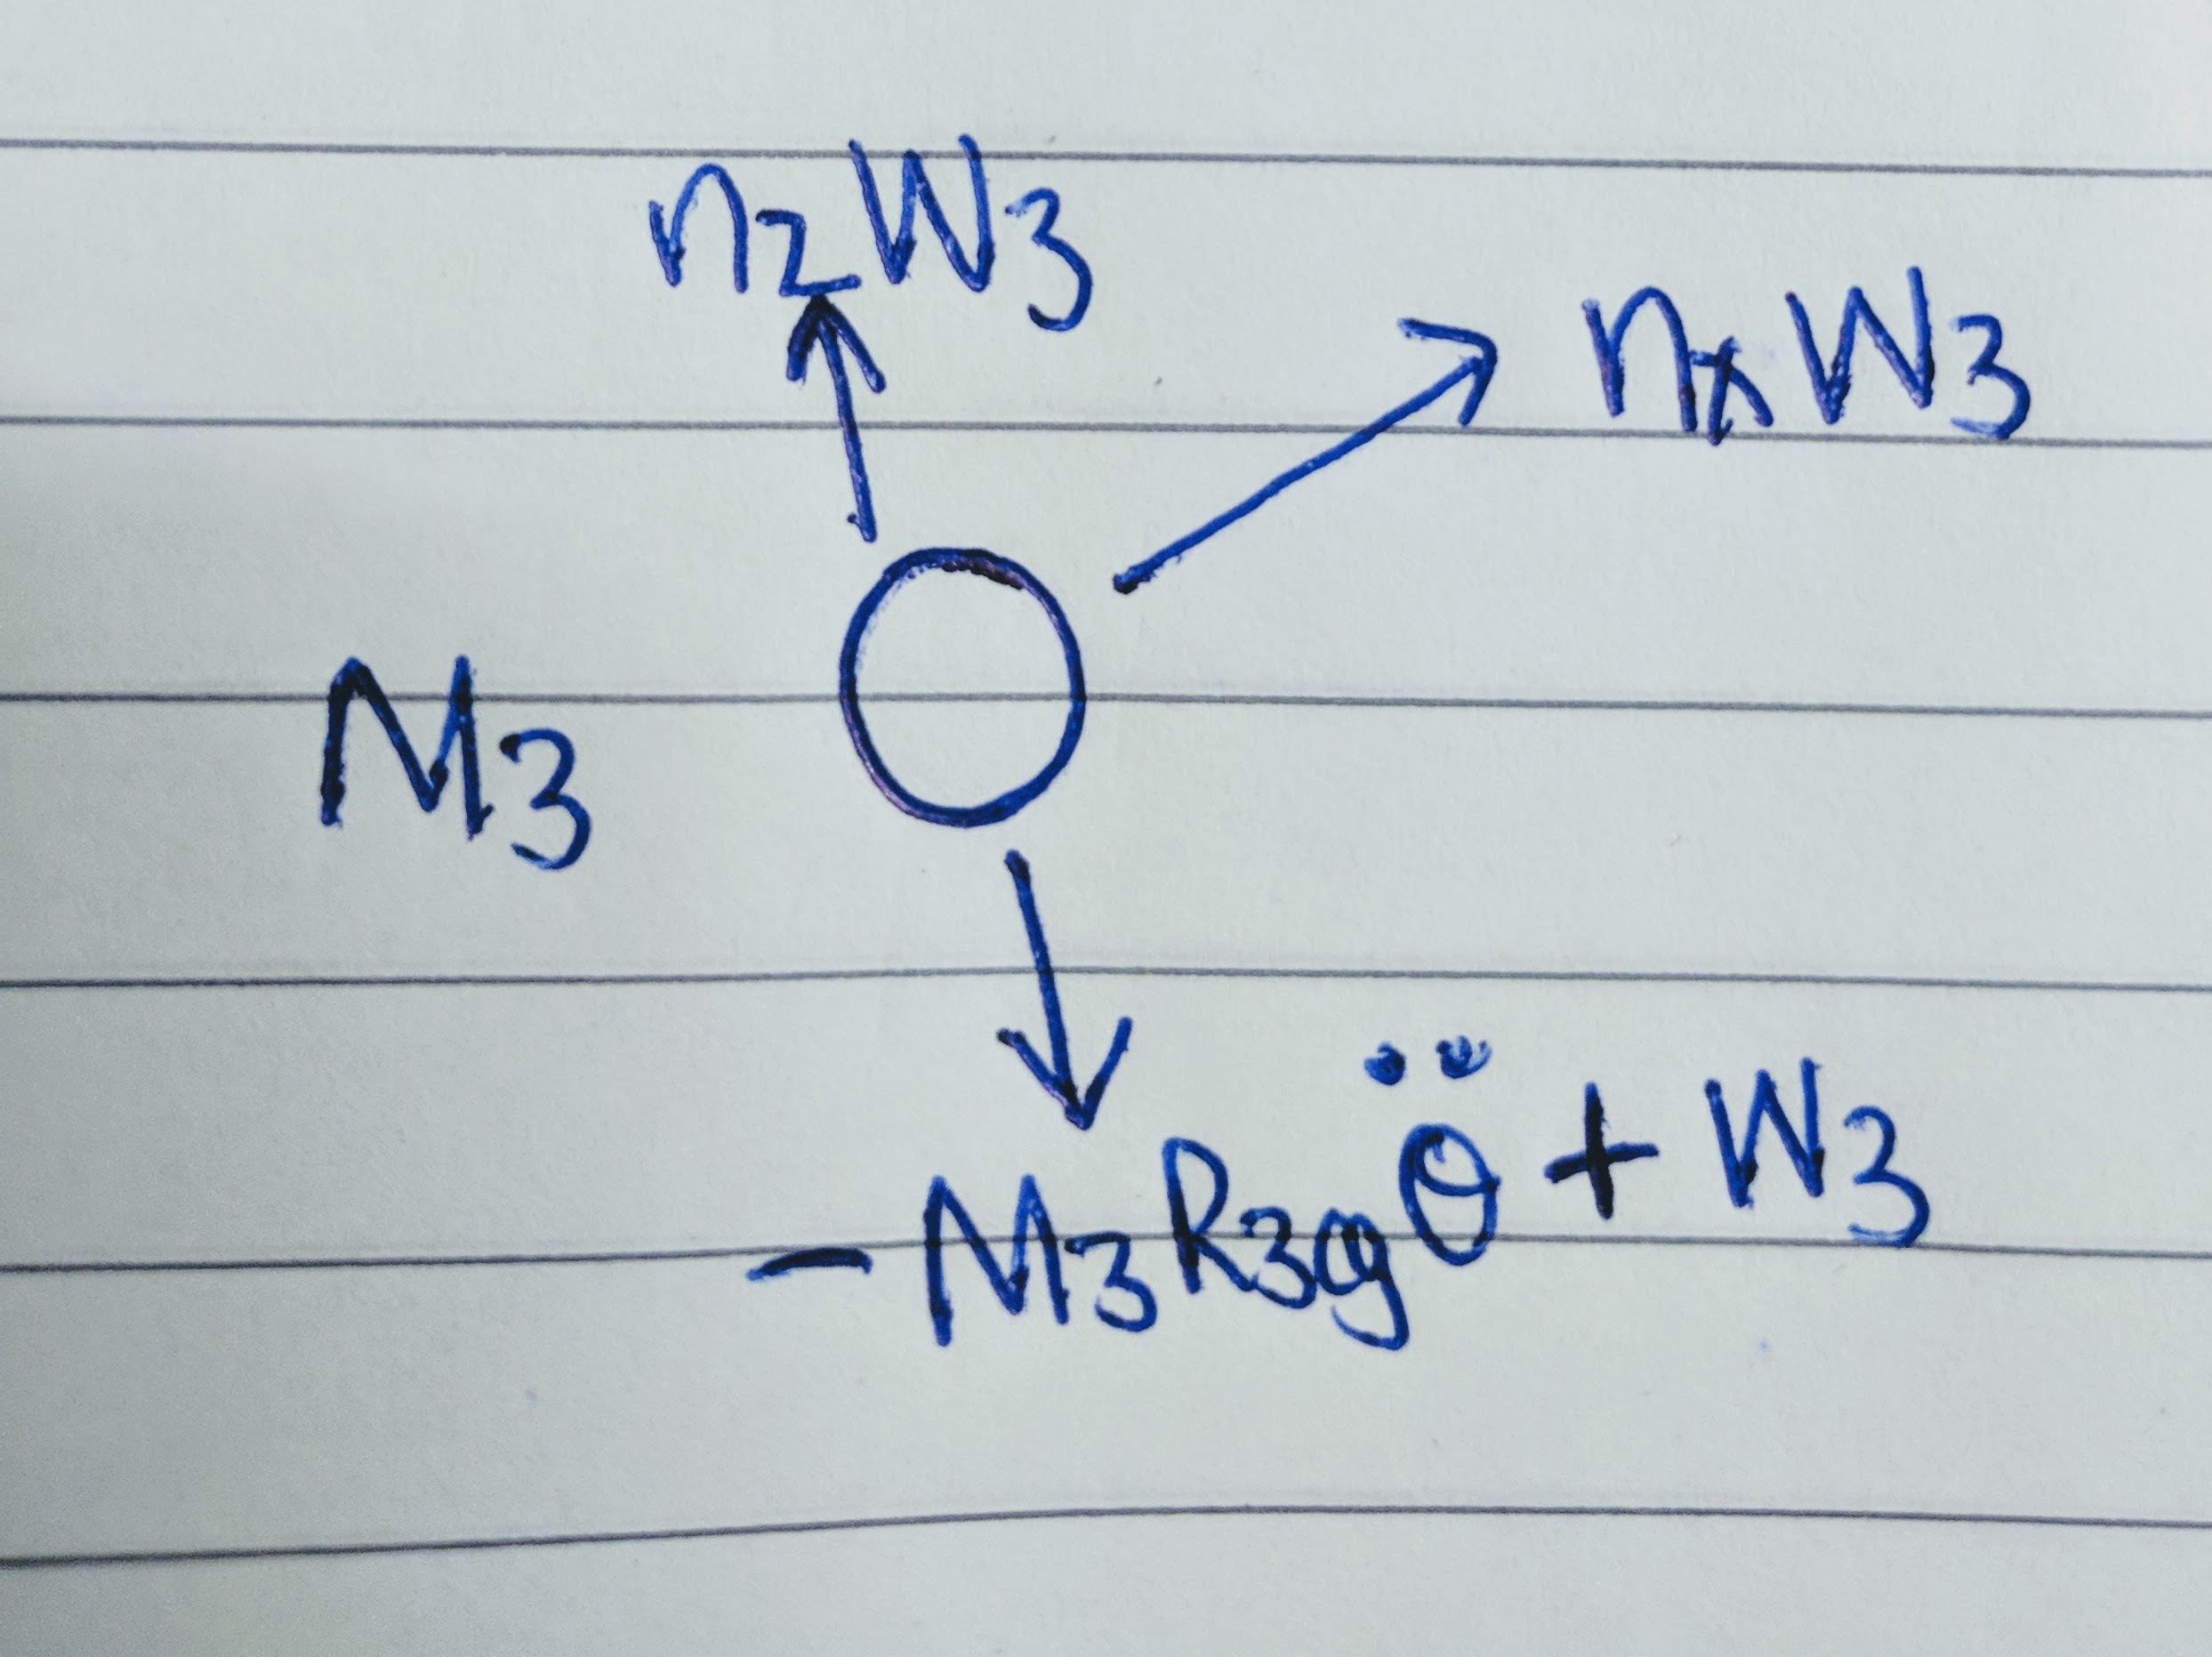 nzW3
nxW3
M3
-M3R3gӪ + W3